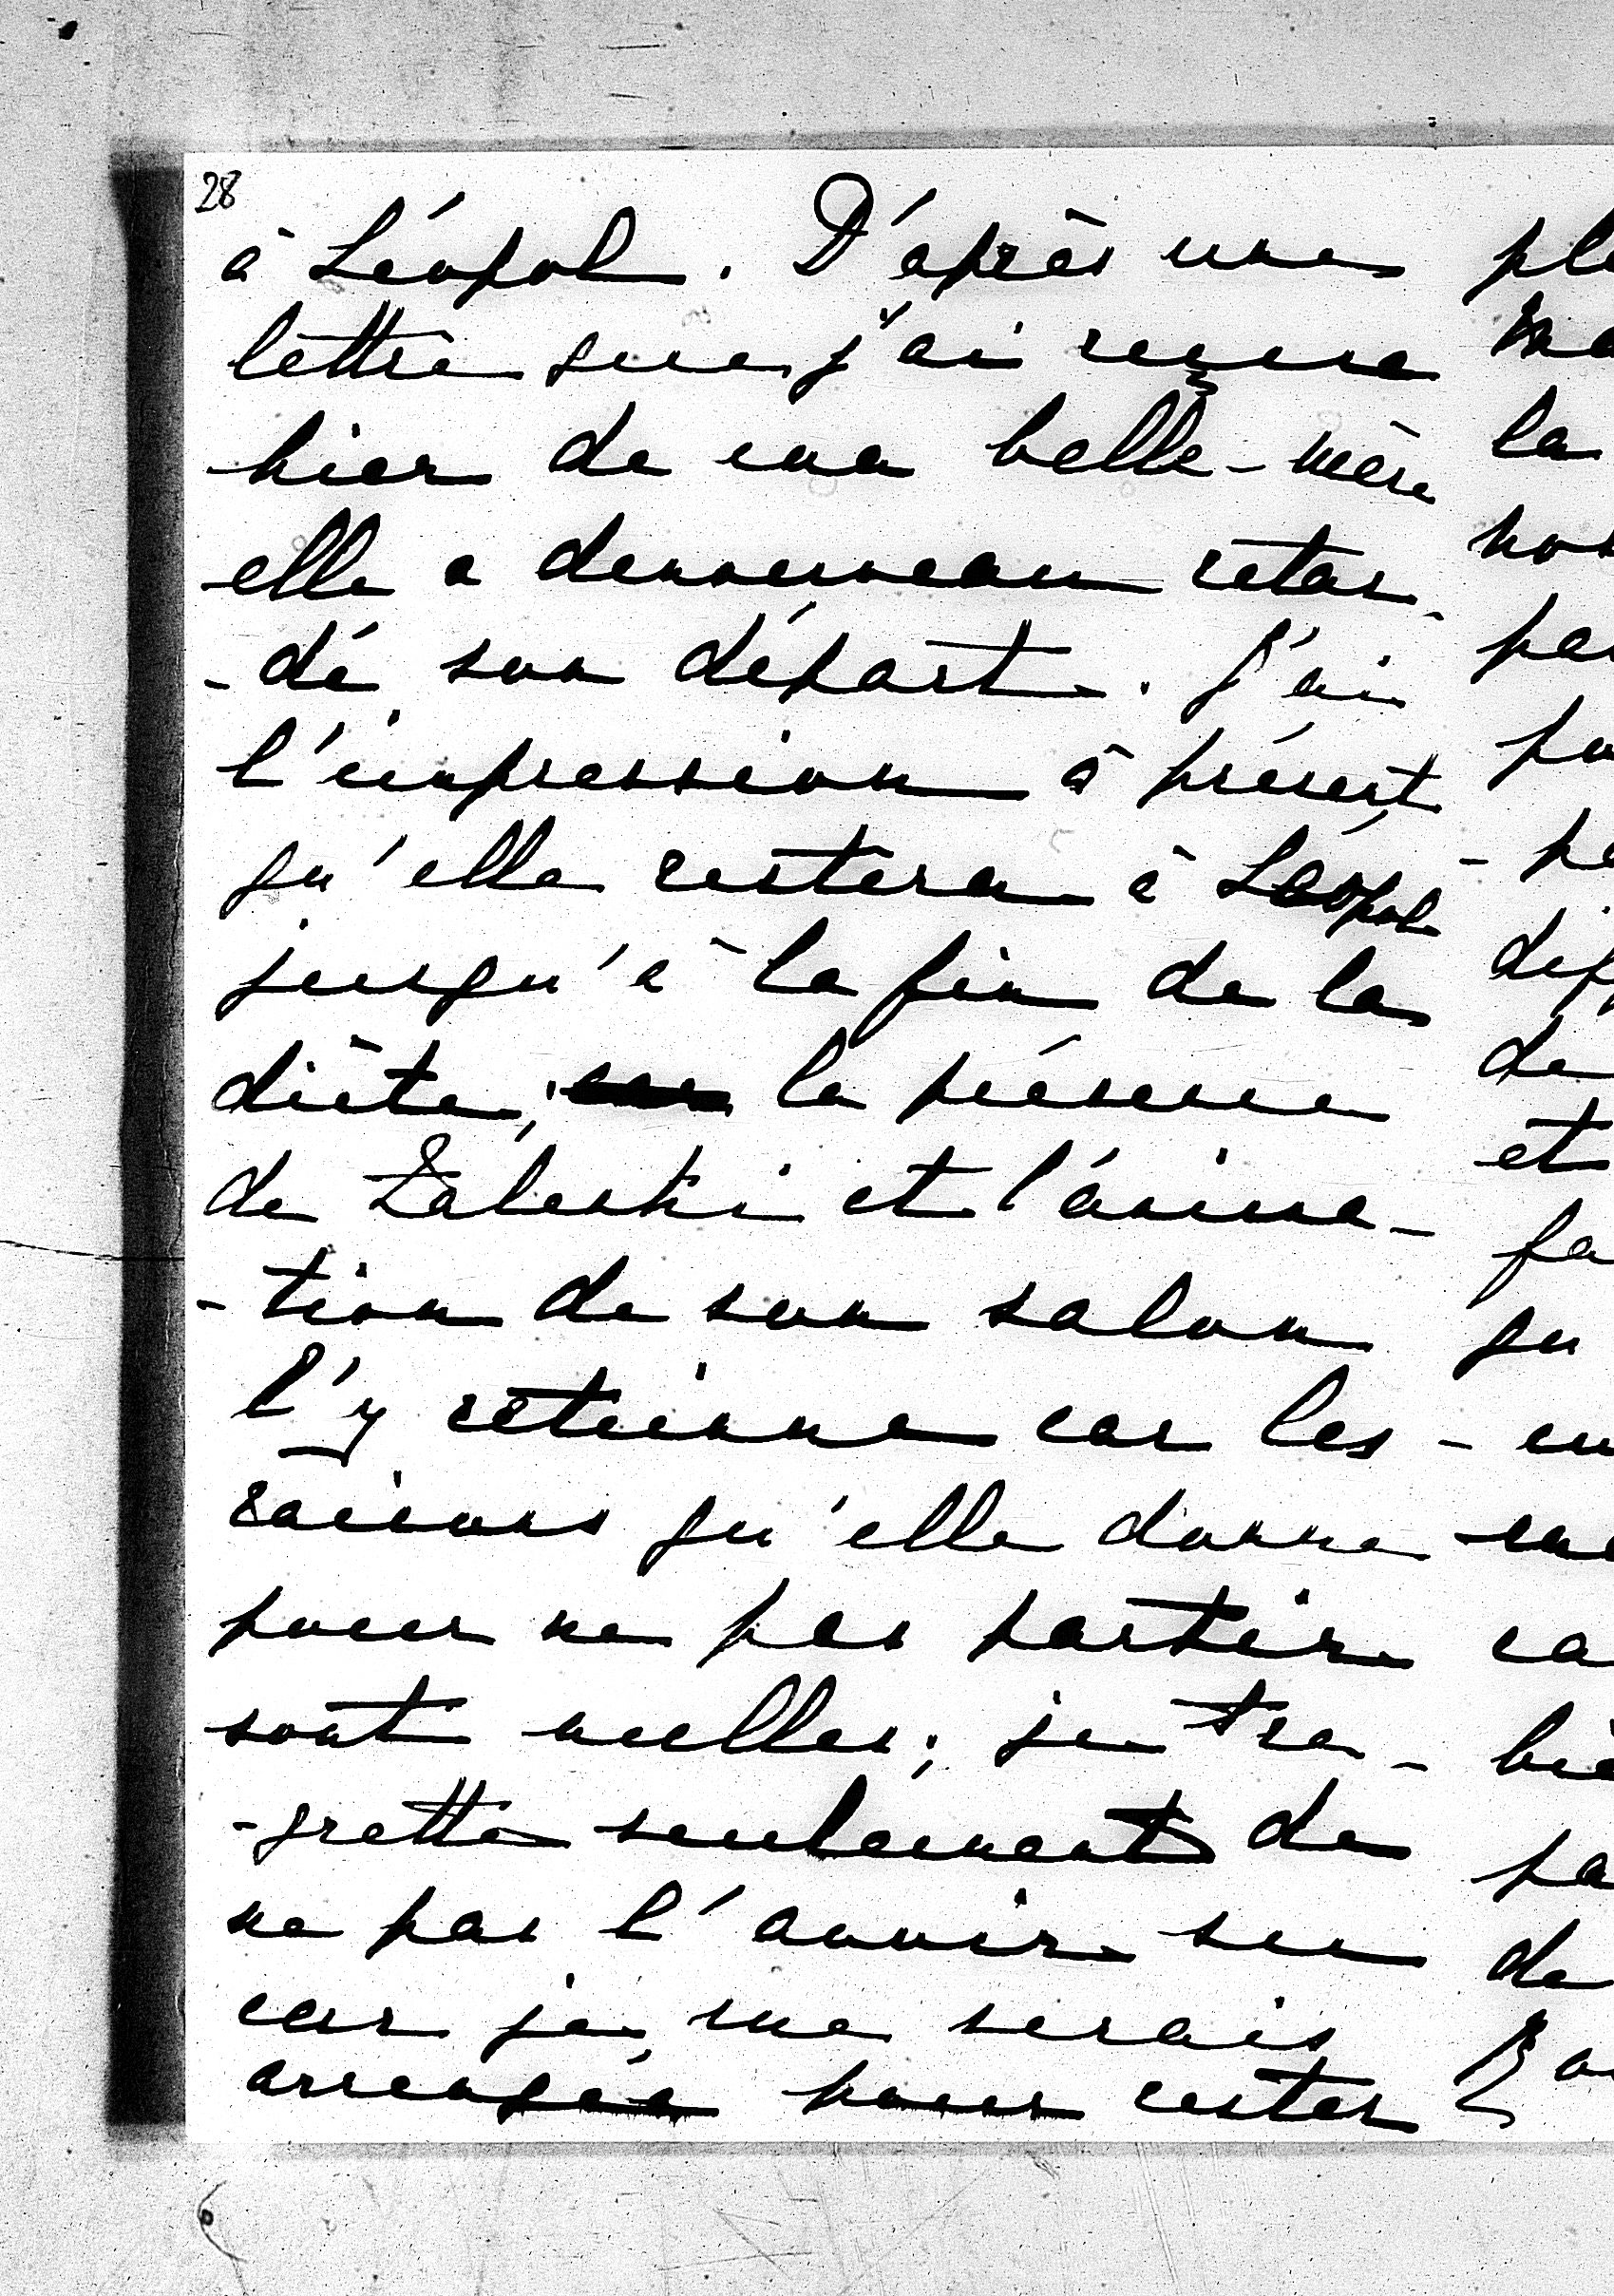 28
à Léopol. D'après une
lettre que j'ai reçue
hier de ma belle-mère
elle a denouveau retar-
-dé son départ. J'ai
l'impression à présent
qu'elle restera à Léopol
jusqu'à la fin de la
diète; la présence
de Zaleski et l'anima-
-tion de son salon
l'y retienne car les
raisons qu'elle donne
pour ne pas partir
sont nulles; je re-
-grette seulement de
ne pas l'avoir su
car je me serais
arrangée pour rester